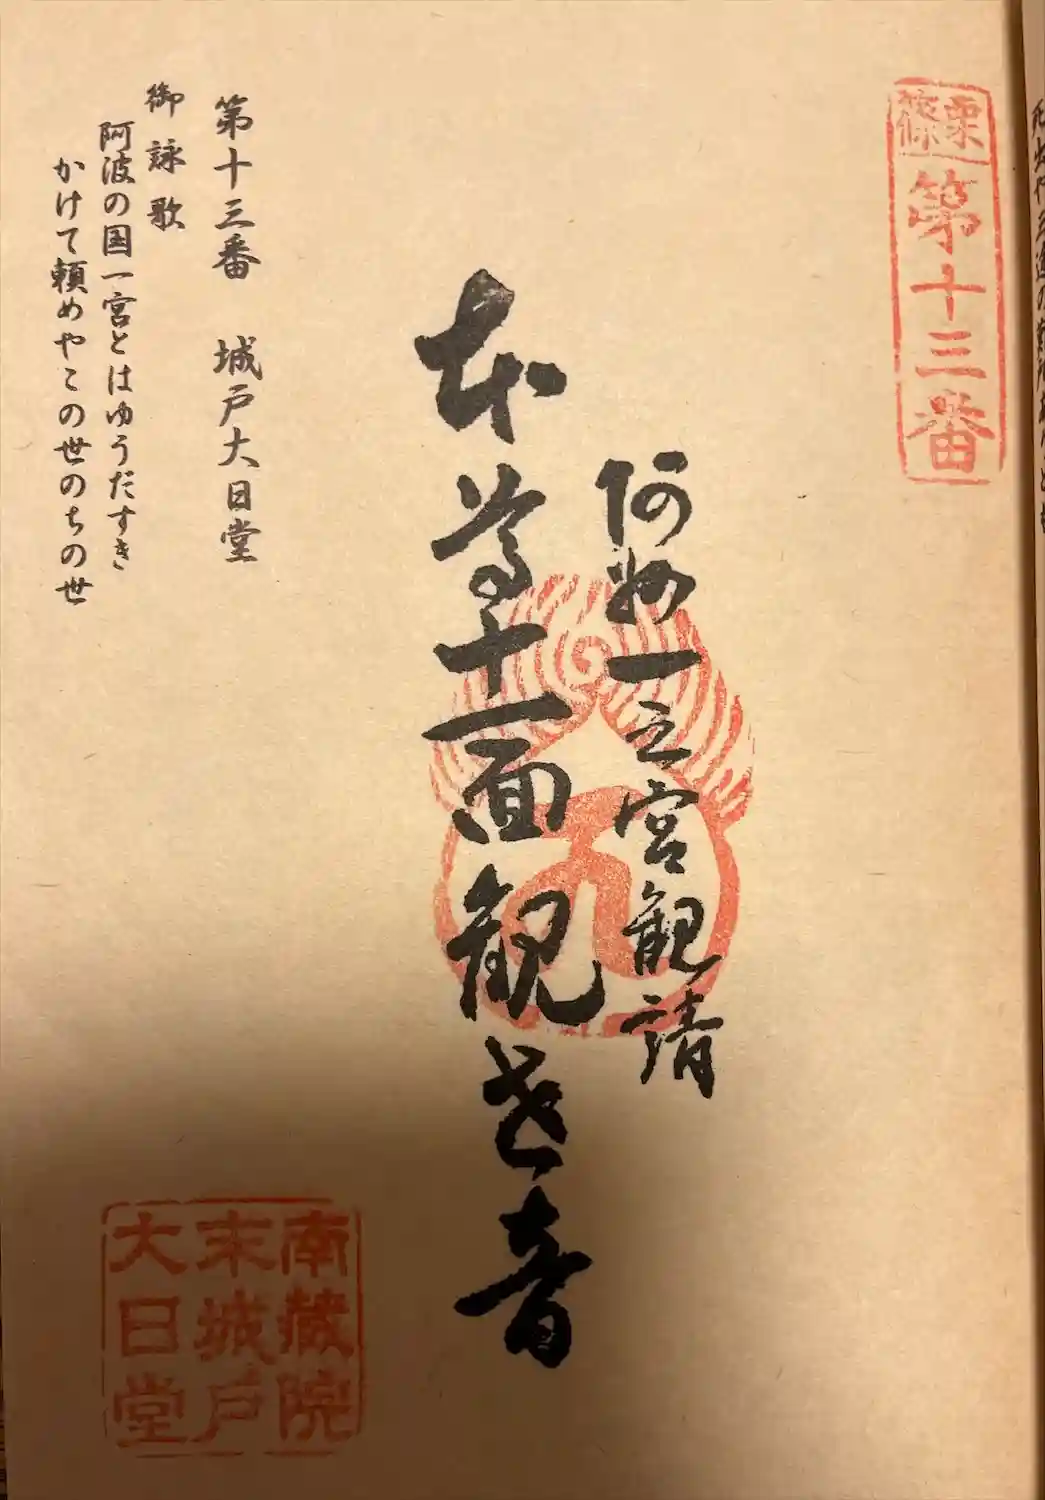 篠栗
第十三番
阿州一之宮観請
本尊十一面観世音
第十三番 城戸大日堂
御詠歌
阿波の国一宮とはゆうだすき
かけて頼めやこの世のちの世
南蔵院
末城戸
大日堂